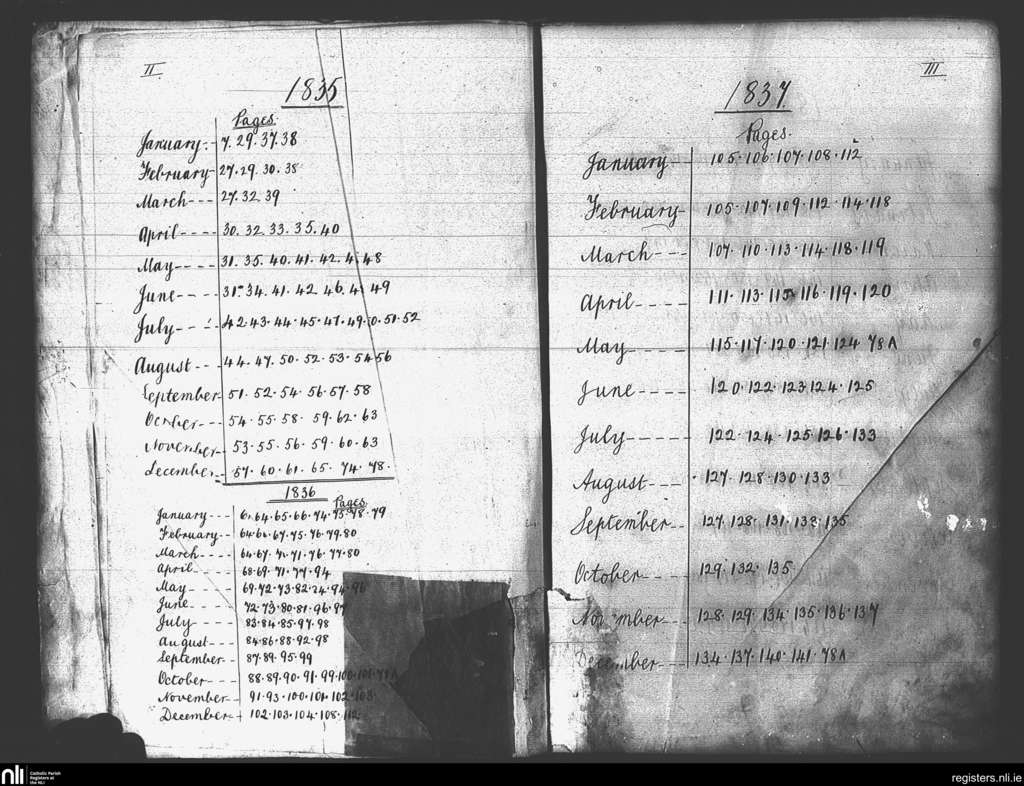 II
1835
Pages.
January - 7. 29. 37. 38
February - 27. 29. 30. 38
March - - - 27. 32. 39
April - - - - 30. 32. 33. 35. 40
May - - - - 31. 35. 40. 41. 42. 4. 48
June - - - - 31. 34. 41. 42. 46. 4. 49
July - - - - 42. 43. 44. 45. 47. 49. 0. 51. 52
August - - - 44. 47. 50. 52. 53. 54. 56
September - 51. 52. 54. 56. 57. 58
October - - - 54. 55. 58. 59. 62. 63
November - - 53. 55. 56. 59. 60. 63
December - - 57. 60. 61. 65. 74. 78.
1836
Pages
January - - - 64. 65. 66. 74. 75. 78. 79
February - - - 67. 75. 76. 79. 80
March - - - - 64. 67. 71. 76. 77. 80
April - - - - 68. 69. 71. 77. 94
May - - - - 69. 72. 73. 82. 94. 96
June - - - - 72. 73. 80. 81. 96. 97
July - - - - 83. 84. 85. 97. 98
August - - - 84. 86. 88. 92. 98
September - - 87. 89. 95. 99
October - - - 88. 89. 90. 91. 99. 100. 101. 78A
November - - 91. 93. 100. 101. 102. 103
December - - 102. 103. 104. 108. 112
III
1837
Pages.
January - - 105. 106. 107. 108. 112
February - 105. 107. 109. 112. 114. 118
March - - - 107. 110. 113. 114. 118. 119
April - - - - 111. 113. 115. 116. 119. 120
May - - - - 115. 117. 120. 121. 124. 78A
June - - - - 120. 122. 123. 124. 125
July - - - - - 122. 124. 125. 126. 133
August - - - 127. 128. 130. 133
September - - 127. 128. 131. 133. 135
October - - - 129. 132. 135
November - - 128. 129. 134. 135. 136. 137
December - - 134. 137. 140. 141. 78A
nli Catholic Parish
Registers at
the NLI
registers.nli.ie